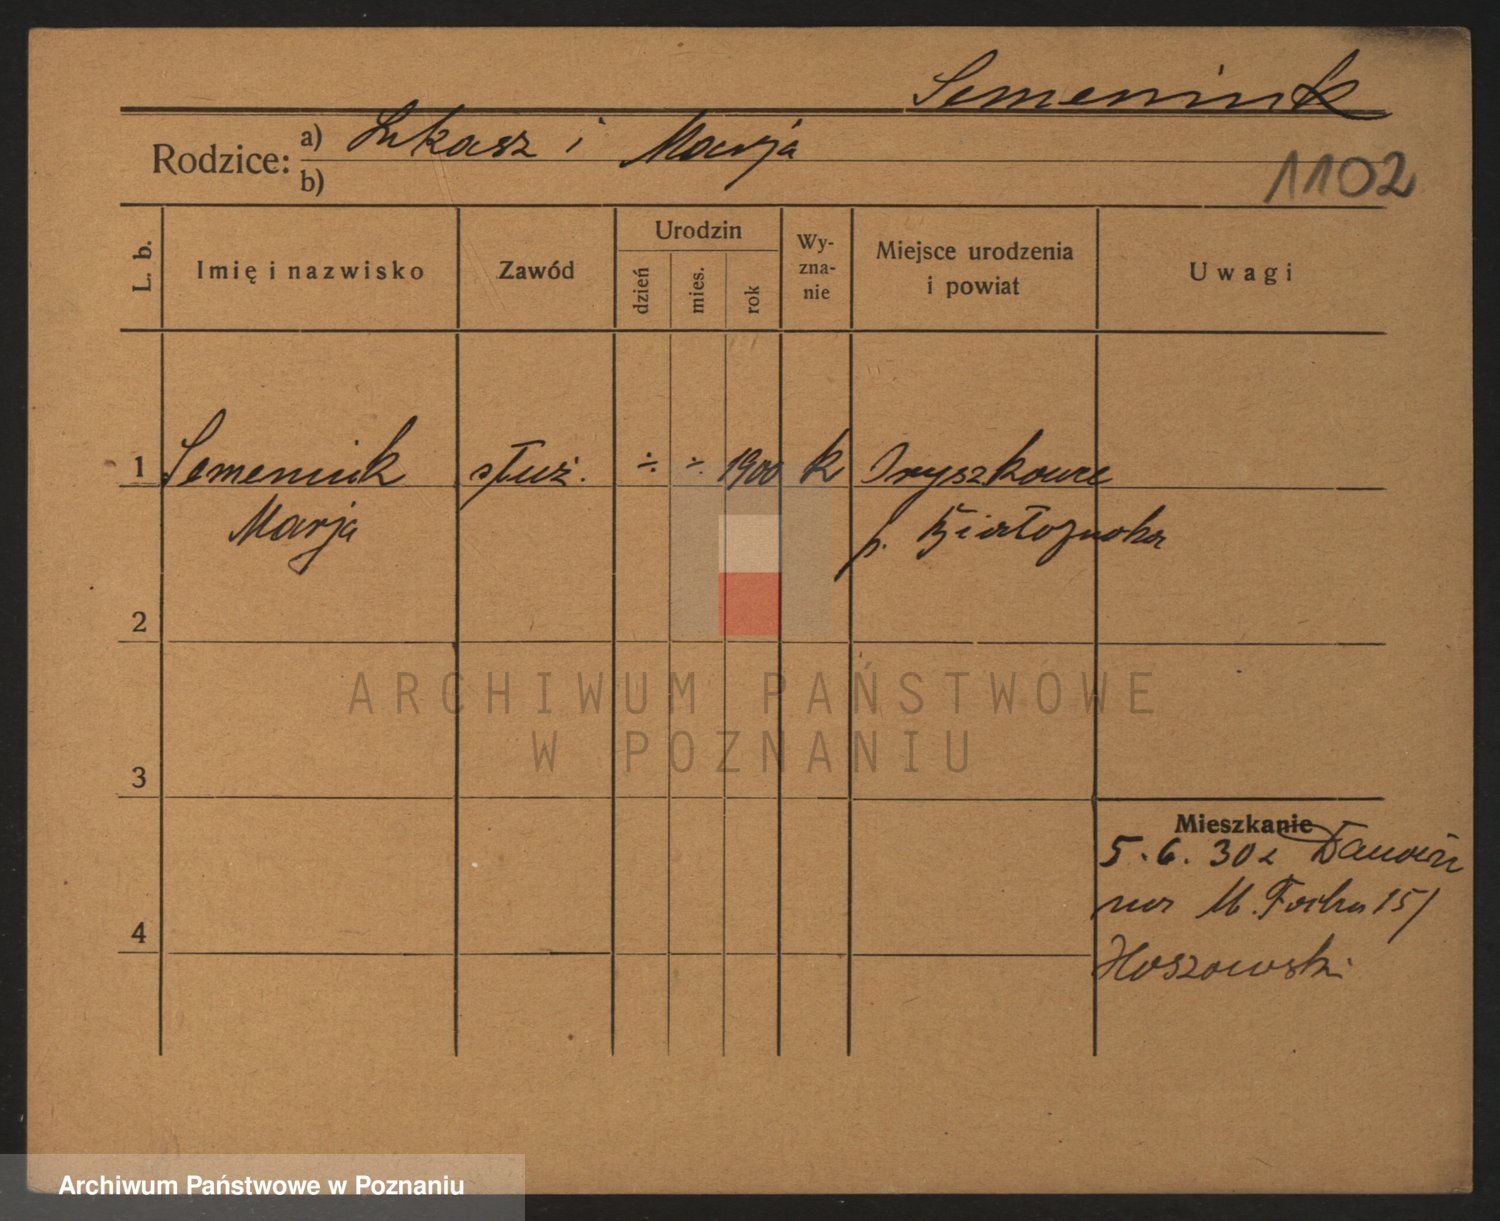 Semeniuk
Rodzice: a) Łukasz i Marja
b)
1102
L. b.
Imię i nazwisko
Zawód
Urodzin
dzień
mies.
rok
Wy-
zna-
nie
Miejsce urodzenia
i powiat
Uwagi
1 Semeniuk służ. ÷ ÷ 1900 k
Marja p.
2
3
4
Mieszkanie
5.6.30 z
na M. Focha 151
Hoszowski
ARCHIWUM PAŃSTWOWE
W POZNANIU
Archiwum Państwowe w Poznaniu